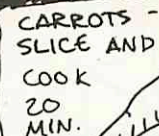 CARROTS -
SLICE AND
COOK
20
MIN.